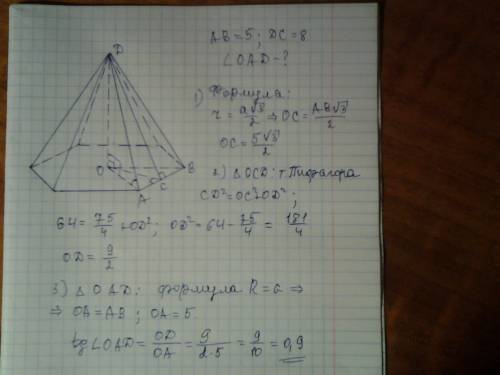 D
O
B
C
A
AB = 5; DC = 8
∠OAD - ?
1) Формула:
r = a√3/2 ⇒ OC = AB√3/2
OC = 5√3/2
2) △OCD: т Пифагора
CD² = OC² + OD²;
64 = 75/4 + OD²; OD² = 64 - 75/4 = 181/4
OD = 9/2
3) △OAD: формула R = a ⇒
⇒ OA = AB; OA = 5
tg∠OAD = OD/OA = 9/2·5 = 9/10 = 0,9